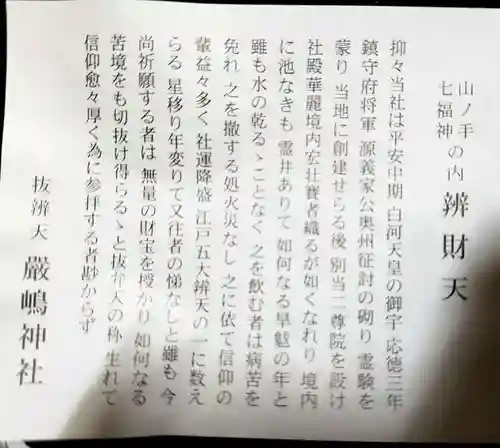 山ノ手
七福神
の内
辨財天
抑々当社は平安中期 白河天皇の御宇 応徳三年
鎮守府将軍 源義家公奥州征討の砌り 霊験を
蒙り 当地に創建せらる後 別当二尊院を設け
社殿華麗境内宏壮賽者織るが如くなれり 境内
に池なきも 霊井ありて 如何なる旱魃の年と
雖も水の乾るゝことなく 之を飲む者は病苦を
免れ 之を撒する処火災なし 之に依て信仰の
輩益々多く 社運隆盛 江戸五大辨天の一に数え
らる 星移り年変りて又往者の悌なしと雖も 今
尚祈願する者は 無量の財宝を授かり 如何なる
苦境をも切抜け得らるゝと抜弁天の称 生れて
信仰愈々厚く為に参拝する者尠からず
抜辨天 嚴嶋神社